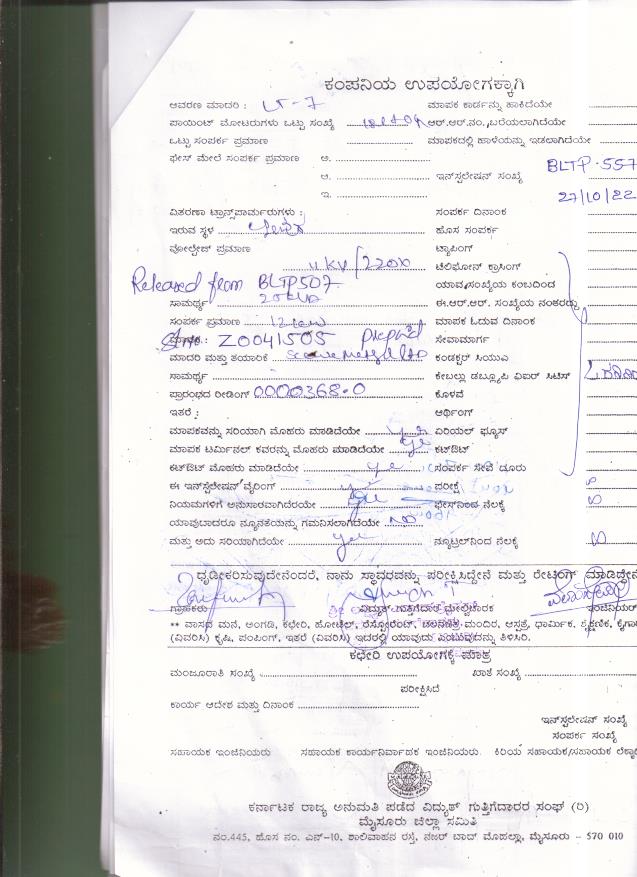 ಕಂಪನಿಯ ಉಪಯೋಗಕ್ಕಾಗಿ
ಆವರಣ ಮಾದರಿ : LT-7 ಮಾಪಕ ಕಾರ್ಡನ್ನು ಹಾಕಿದೆಯೇ
ಪಾಯಿಂಟ್ ಮೋಟರುಗಳು ಒಟ್ಟು ಸಂಖ್ಯೆ ಆರ್.ಆರ್.ನಂ. ಬರೆಯಲಾಗಿದೆಯೇ
ಒಟ್ಟು ಸಂಪರ್ಕ ಪ್ರಮಾಣ ಮಾಪಕದಲ್ಲಿ ಹಾಳೆಯನ್ನು ಇಡಲಾಗಿದೆಯೇ
ಫೇಸ್ ಮೇಲೆ ಸಂಪರ್ಕ ಪ್ರಮಾಣ ಅ.
ಆ. ಇನ್‌ಸ್ಟಲೇಷನ್ ಸಂಖ್ಯೆ BLTP-557
ಇ. 27/10/22
ವಿತರಣಾ ಟ್ರಾನ್ಸ್‌ಪಾರ್ಮರುಗಳು : ಸಂಪರ್ಕ ದಿನಾಂಕ
ಇರುವ ಸ್ಥಳ ಹೊಸ ಸಂಪರ್ಕ
ವೋಲ್ಟೇಜ್ ಪ್ರಮಾಣ ಟ್ಯಾಪಿಂಗ್
11KV/220V ಟೆಲಿಫೋನ್ ಕ್ರಾಸಿಂಗ್
Released from BLTP507 ಯಾವ ಸಂಖ್ಯೆಯ ಕಂಬದಿಂದ
ಸಾಮರ್ಥ್ಯ ಈ.ಆರ್.ಆರ್. ಸಂಖ್ಯೆಯ ನಂತರದ್ದು
ಸಂಪರ್ಕ ಪ್ರಮಾಣ 12kw ಮಾಪಕ ಓದುವ ದಿನಾಂಕ
ಮಾಪಕ : Z0041505 prepaid ಸೇವಾಮಾರ್ಗ
ಮಾದರಿ ಮತ್ತು ತಯಾರಿಕೆ ಕಂಡಕ್ಟರ್ ಸಿಯುಎ
ಸಾಮರ್ಥ್ಯ ಕೇಬಲ್ಲು ಡಬ್ಲ್ಯೂಪಿ ಏಐಆರ್ ಸಿಟಿಸ್
ಪ್ರಾರಂಭದ ರೀಡಿಂಗ್ 0000368-0 ಕೊಳವೆ
ಇತರೆ : ಆರ್ಥಿಂಗ್
ಮಾಪಕವನ್ನು ಸರಿಯಾಗಿ ಮೊಹರು ಮಾಡಿದೆಯೇ yes ಏರಿಯಲ್ ಫ್ಯೂಸ್
ಮಾಪಕ ಟರ್ಮಿನಲ್ ಕವರನ್ನು ಮೊಹರು ಮಾಡಿದೆಯೇ yes ಕಟ್‌ಔಟ್
ಕಟ್‌ಔಟ್ ಮೊಹರು ಮಾಡಿದೆಯೇ yes ಸಂಪರ್ಕ ಸೇವೆ ದೂರು
ಈ ಇನ್‌ಸ್ಟಲೇಷನ್ ವೈರಿಂಗ್ ಪರೀಕ್ಷೆ
ನಿಯಮಗಳಿಗೆ ಅನುಸಾರವಾಗಿದೆಯೇ yes ಫೇಸ್‌ನಿಂದ ನೆಲಕ್ಕೆ
ಯಾವುದಾದರೂ ನ್ಯೂನತೆಯನ್ನು ಗಮನಿಸಲಾಗಿದೆಯೇ NO
ಮತ್ತು ಅದು ಸರಿಯಾಗಿದೆಯೇ yes ನ್ಯೂಟ್ರಲ್‌ನಿಂದ ನೆಲಕ್ಕೆ
ಧೃಡೀಕರಿಸುವುದೇನೆಂದರೆ, ನಾನು ಸ್ಥಾವರವನ್ನು ಪರೀಕ್ಷಿಸಿದ್ದೇನೆ ಮತ್ತು ರೇಟಿಂಗ್ ಮಾಡಿದ್ದೇನೆ
ಗ್ರಾಹಕರು ವಿದ್ಯುತ್ ಗುತ್ತಿಗೆದಾರ ಮೇಲ್ವಿಚಾರಕ ಇಂಜಿನಿಯರ್
** ವಾಸದ ಮನೆ, ಅಂಗಡಿ, ಕಛೇರಿ, ಹೋಟೆಲ್, ರೆಸ್ಟೋರೆಂಟ್, ಮಂದಿರ, ಆಸ್ಪತ್ರೆ, ಧಾರ್ಮಿಕ, ಶೈಕ್ಷಣಿಕ, ಕೈಗಾ
(ವಿವರಿಸಿ) ಕೃಷಿ, ಪಂಪಿಂಗ್, ಇತರೆ (ವಿವರಿಸಿ) ಇದರಲ್ಲಿ ಯಾವುದು ಎಂಬುವುದನ್ನು ತಿಳಿಸಿರಿ.
ಕಛೇರಿ ಉಪಯೋಗಕ್ಕೆ ಮಾತ್ರ
ಮಂಜೂರಾತಿ ಸಂಖ್ಯೆ ಖಾತೆ ಸಂಖ್ಯೆ
ಪರೀಕ್ಷಿಸಿದೆ
ಕಾರ್ಯ ಆದೇಶ ಮತ್ತು ದಿನಾಂಕ
ಇನ್‌ಸ್ಟಲೇಷನ್ ಸಂಖ್ಯೆ
ಸಂಪರ್ಕ ಸಂಖ್ಯೆ
ಸಹಾಯಕ ಇಂಜಿನಿಯರು ಸಹಾಯಕ ಕಾರ್ಯನಿರ್ವಾಹಕ ಇಂಜಿನಿಯರು ಕಿರಿಯ ಸಹಾಯಕ/ಸಹಾಯಕ ಲೆಕ್ಕಾ
ಕರ್ನಾಟಕ ರಾಜ್ಯ ಅನುಮತಿ ಪಡೆದ ವಿದ್ಯುತ್ ಗುತ್ತಿಗೆದಾರರ ಸಂಘ (ರಿ)
ಮೈಸೂರು ಜಿಲ್ಲಾ ಸಮಿತಿ
ನಂ.445, ಹೊಸ ನಂ. ಎನ್-10, ಶಾಲಿವಾಹನ ರಸ್ತೆ, ನಜರ್ ಬಾದ್ ಮೊಹಲ್ಲಾ, ಮೈಸೂರು - 570 010